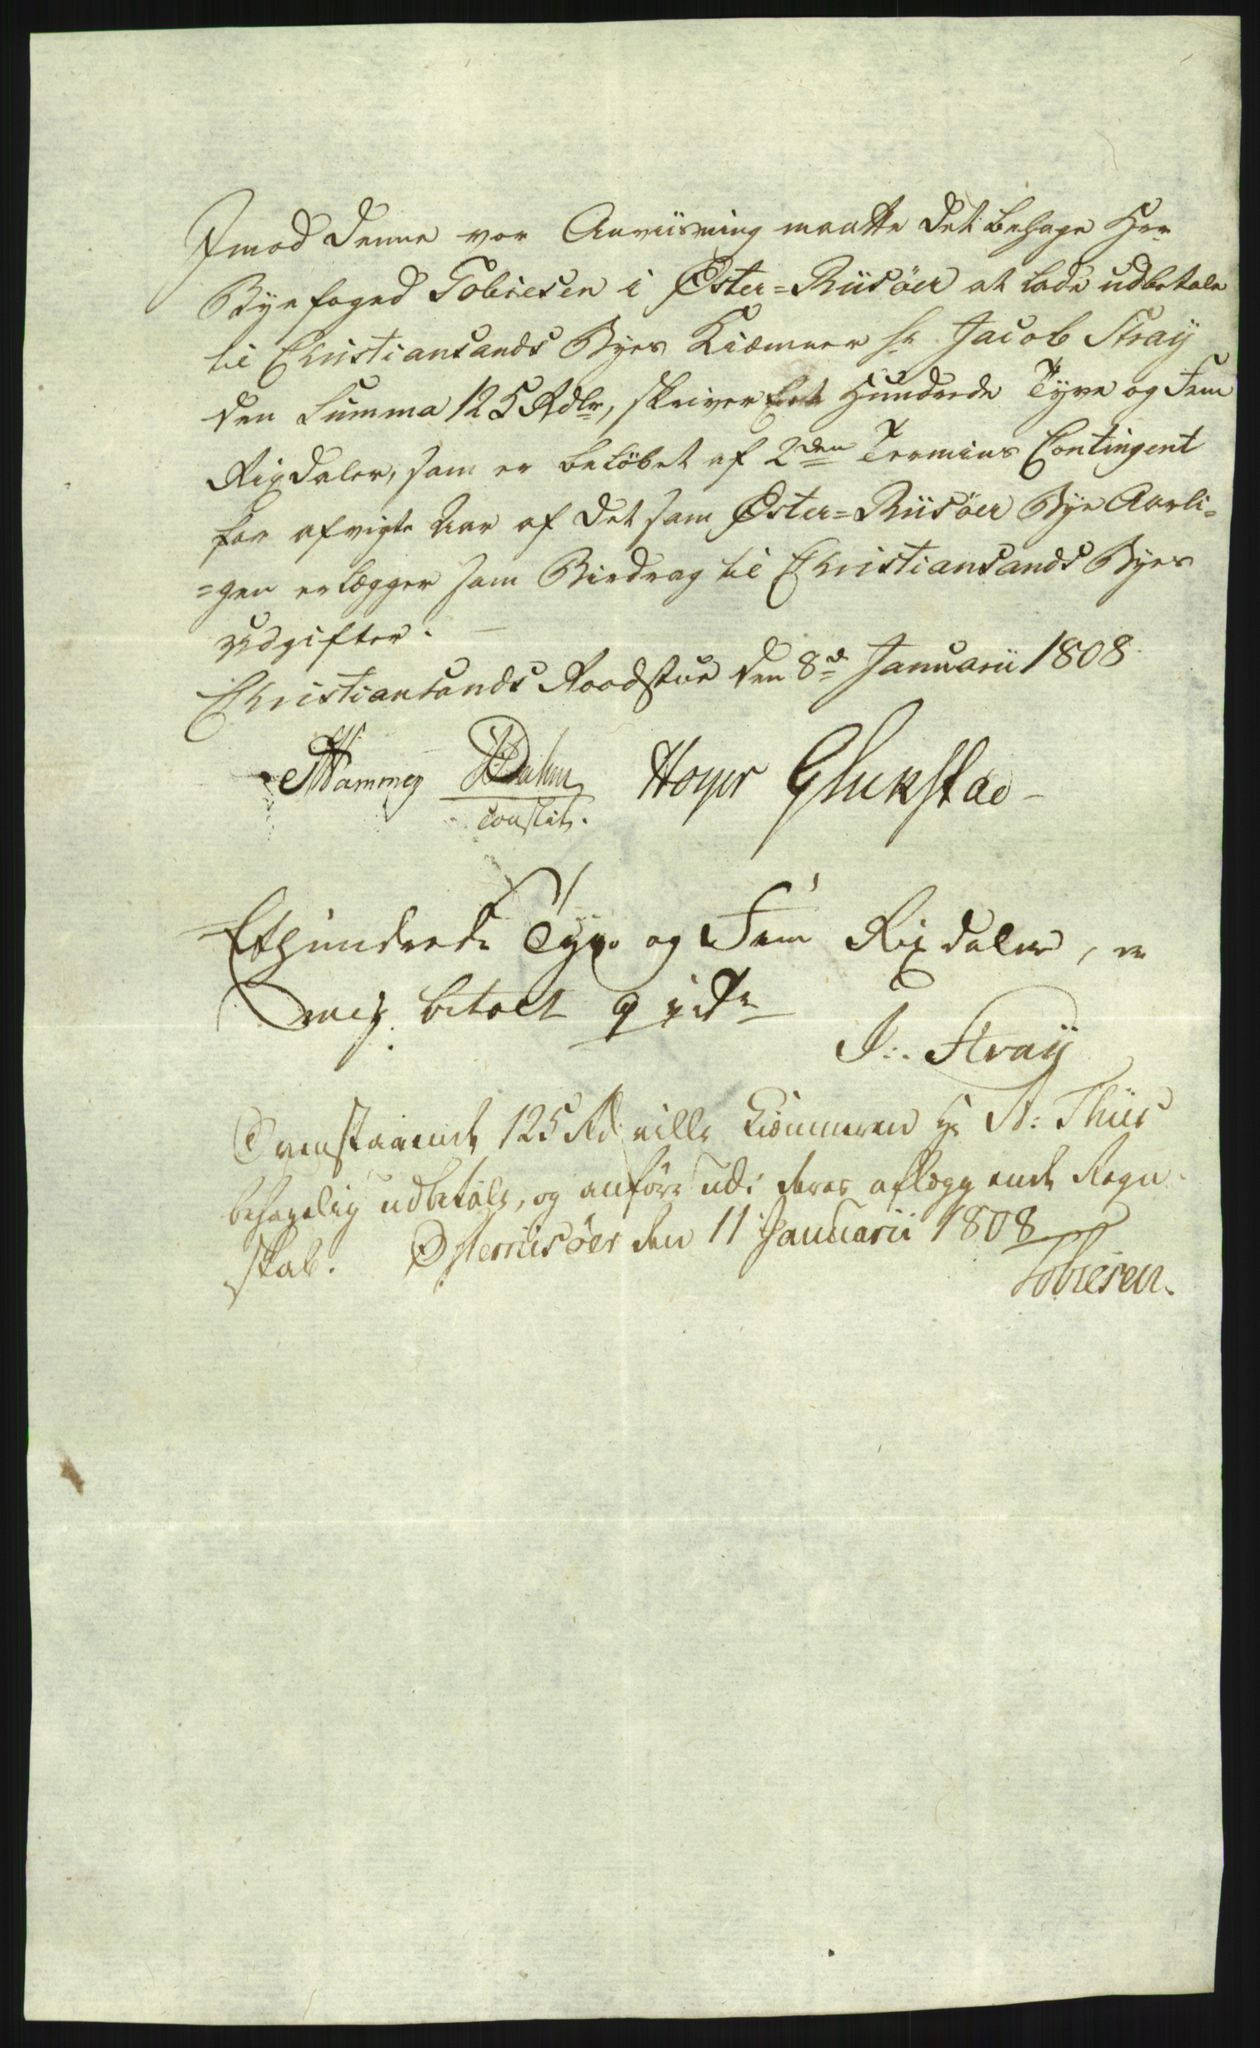 Imod denne vor Anviisning maatte det behage Her
Byefoged Tobiesen i Øster=Riisøer at lade udbetale
til Christiansands Byes Kiæmner Hr. Jacob Stray
den Summa 125 Rdlr, skriver Eet Hundrede Tyve og Fem
Rixdaler, som er beløbet af 2den Termins Contingent
for afvigte Aar af det som Øster=Riisøer Bye Aarli=
=gen erlægger som Biedrag til Christiansands Byes
Udgifter.
Christiansands Raadstue den 8de Januarii 1808
Hammer Dahm Høyer Glukstad
constit.
Ethundrede Tyve og Fem Rixdaler, er
mig betalt qvit
J: Stray
Ovenstaaende 125 Rd ville Kiæmneren Hr A: Thiis
behagelig udbetale, og anføre udi deres aflæggende Regn
skab. Østerriisøer den 11 Januarii 1808
Tobiesen.